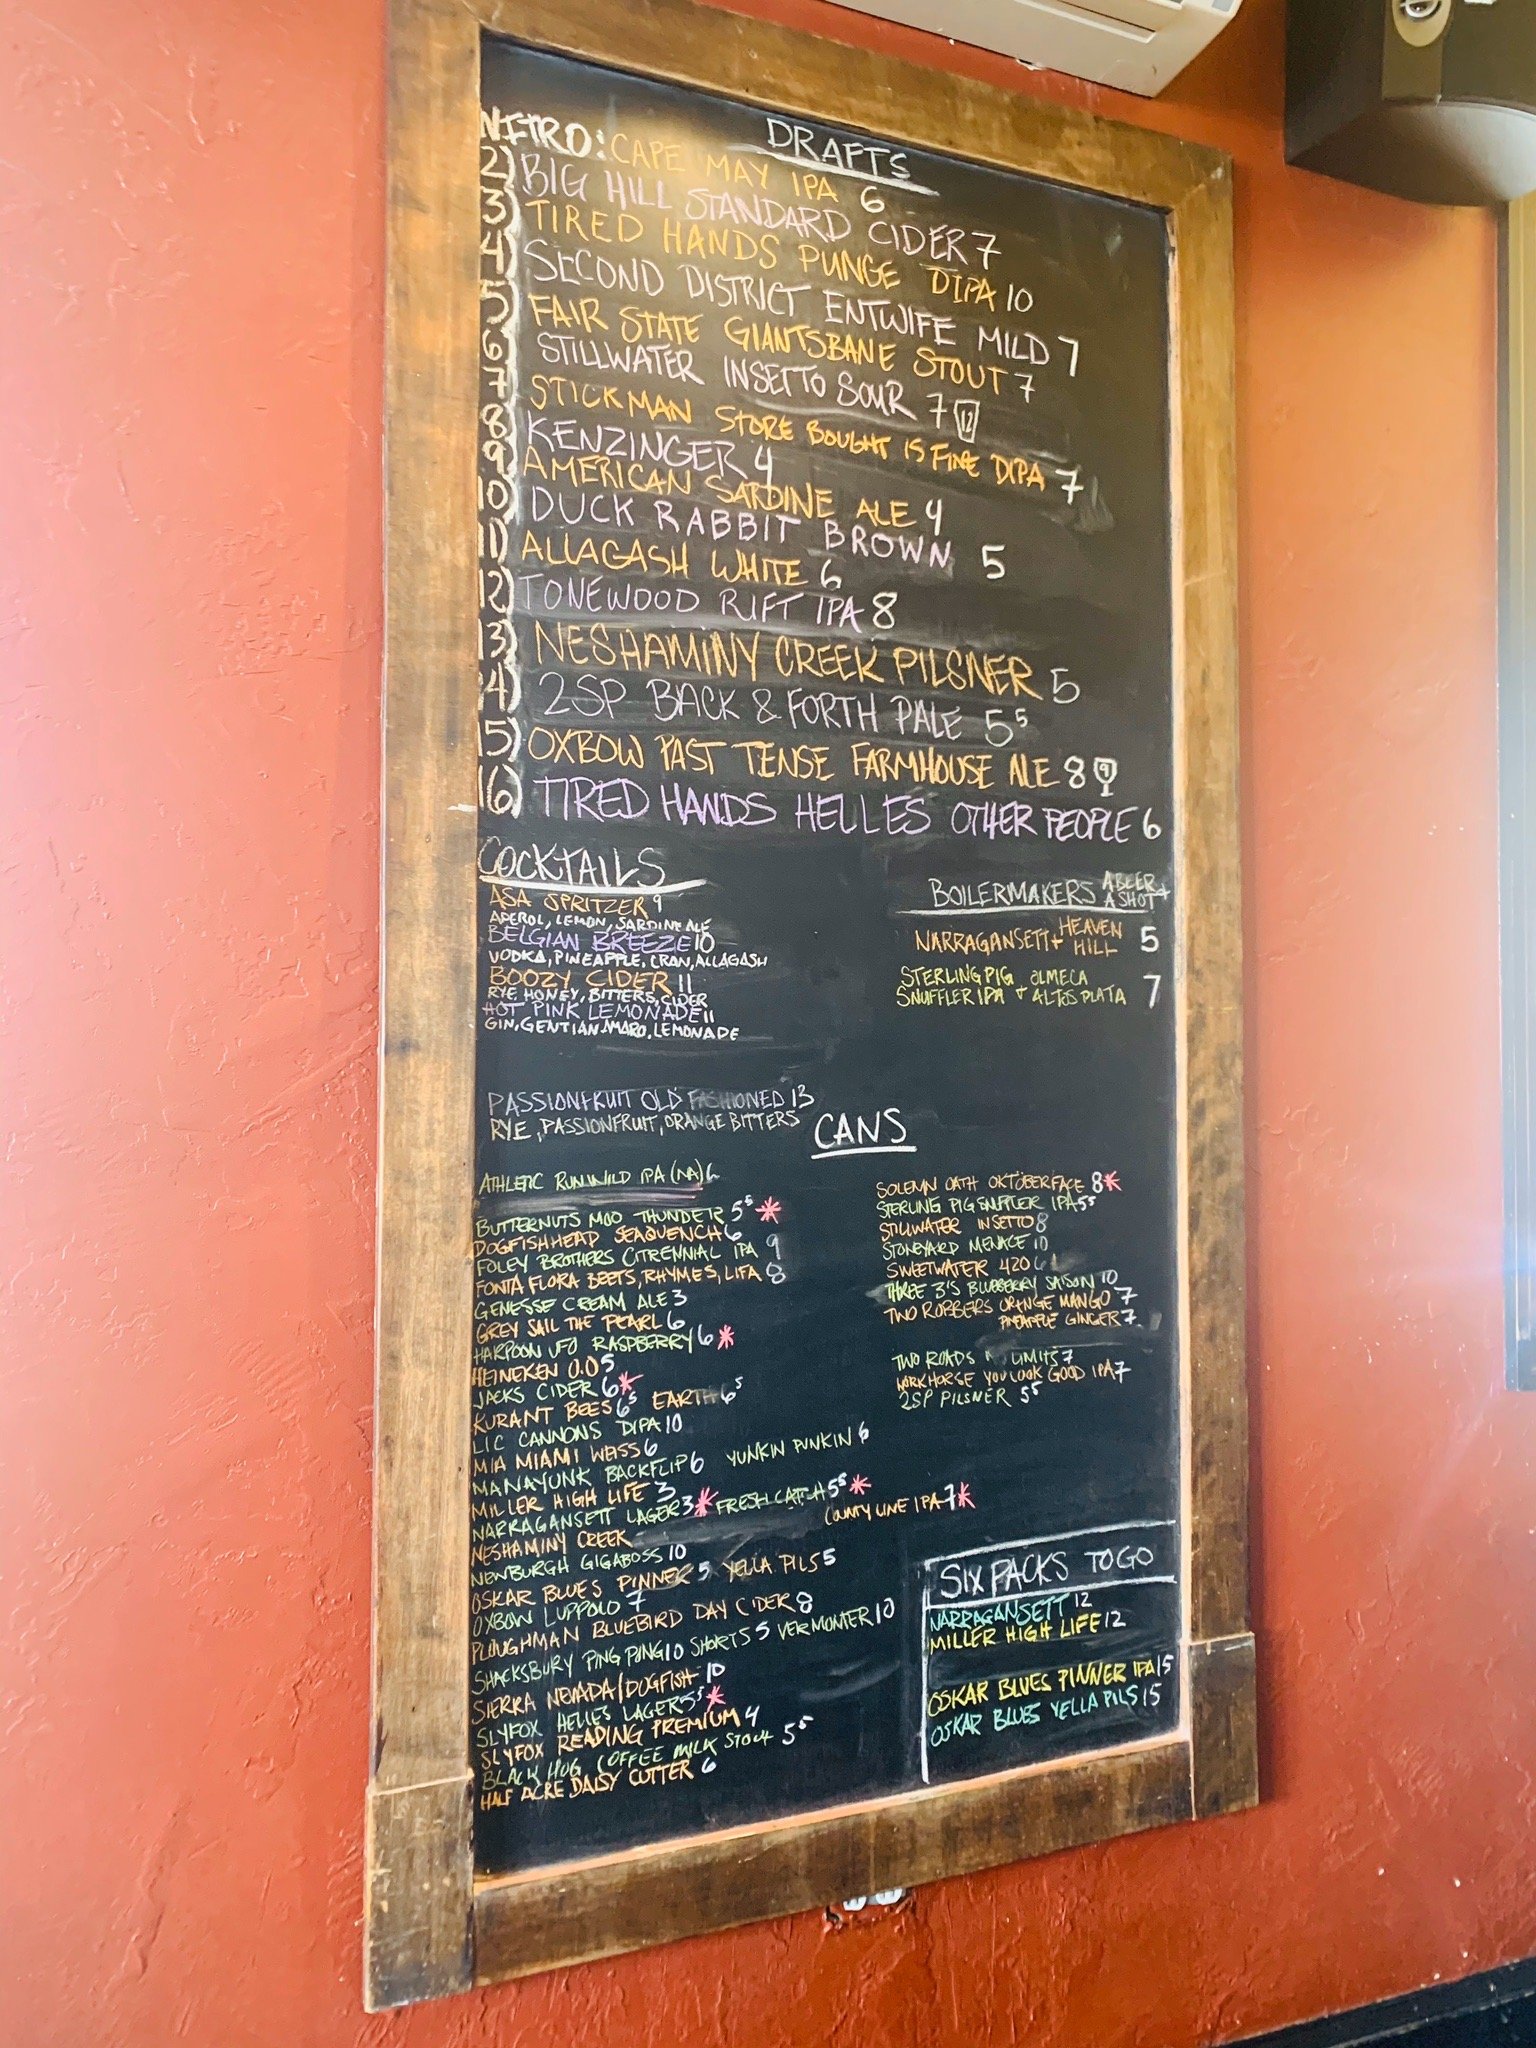 DRAFTS
NITRO: CAPE MAY IPA 6
2) BIG HILL STANDARD CIDER 7
3) TIRED HANDS PUNGE DIPA 10
4) SECOND DISTRICT ENTWIFE MILD 7
5) FAIR STATE GIANTSBANE STOUT 7
6) STILLWATER INSETTO SOUR 7 12
7) STICKMAN STORE BOUGHT IS FINE DIPA 7
8) KENZINGER 4
9) AMERICAN SARDINE ALE 4
10) DUCK RABBIT BROWN 5
11) ALLAGASH WHITE 6
12) TONEWOOD RIFT IPA 8
13) NESHAMINY CREEK PILSNER 5
14) 2SP BACK & FORTH PALE 5⁵
15) OXBOW PAST TENSE FARMHOUSE ALE 8 9
16) TIRED HANDS HELLES OTHER PEOPLE 6
COCKTAILS
ASA SPRITZER 9
APEROL, LEMON, SARDINE ALE
BELGIAN BREEZE 10
VODKA, PINEAPPLE, CRAN, ALLAGASH
BOOZY CIDER 11
RYE HONEY, BITTERS, CIDER
HOT PINK LEMONADE 11
GIN, GENTIAN AMARO, LEMONADE
PASSIONFRUIT OLD FASHIONED 13
RYE, PASSIONFRUIT, ORANGE BITTERS
BOILERMAKERS A BEER + A SHOT
NARRAGANSETT + HEAVEN HILL 5
STERLING PIG SNUFFLER IPA + OLMECA ALTOS PLATA 7
CANS
ATHLETIC RUN WILD IPA (NA) 6
BUTTERNUTS MOO THUNDER 5⁵ *
DOGFISHHEAD SEAQUENCH 6
FOLEY BROTHERS CITRENNIAL IPA 9
FONTA FLORA BEETS, RHYMES, LIFA 8
GENESSE CREAM ALE 3
GREY SAIL THE PEARL 6
HARPOON UFO RASPBERRY 6 *
HEINEKEN 0.0 5
JACKS CIDER 6 *
KURANT BEES 6⁵ EARTH 6⁵
LIC CANNONS DIPA 10
MIA MIAMI WEISS 6
MANAYUNK BACKFLIP 6 YUNKIN PUNKIN 6
MILLER HIGH LIFE 3
NARRAGANSETT LAGER 3 * FRESH CATCH 5⁵ *
NESHAMINY CREEK COUNTY LINE IPA 7 *
NEWBURGH GIGABOSS 10
OSKAR BLUES PINNER 5 YELLA PILS 5
OXBOW LUPPOLO 7
PLOUGHMAN BLUEBIRD DAY CIDER 8
SHACKSBURY PING PONG 10 SHORTS 5 VERMONTER 10
SIERRA NEVADA/DOGFISH 10
SLYFOX HELLES LAGER 5⁵ *
SLYFOX READING PREMIUM 4
BLACK HOG COFFEE MILK STOUT 5⁵
HALF ACRE DAISY CUTTER 6
SOLEMN OATH OKTOBERFACE 8 *
STERLING PIG SNUFFLER IPA 5⁵
STILLWATER INSETTO 8
STONEYARD MENACE 10
SWEETWATER 420 6
THREE 3'S BLUEBERRY SAISON 10
TWO ROBBERS ORANGE MANGO 7
PINEAPPLE GINGER 7
TWO ROADS LIMITS 7
WORKHORSE YOU LOOK GOOD IPA 7
2SP PILSNER 5⁵
SIX PACKS TO GO
NARRAGANSETT 12
MILLER HIGH LIFE 12
OSKAR BLUES PINNER IPA 15
OSKAR BLUES YELLA PILS 15